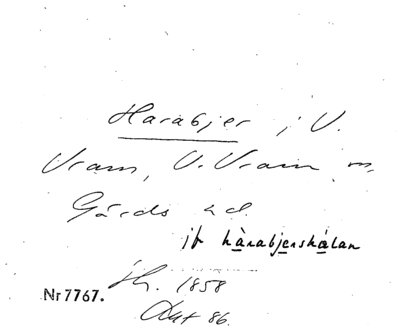 Harabjer i V.
Vram, V. Vram m,
Gärds hd.
jf hàrabjershálan
Nr 7767. Jh. 1858
Akt 86.